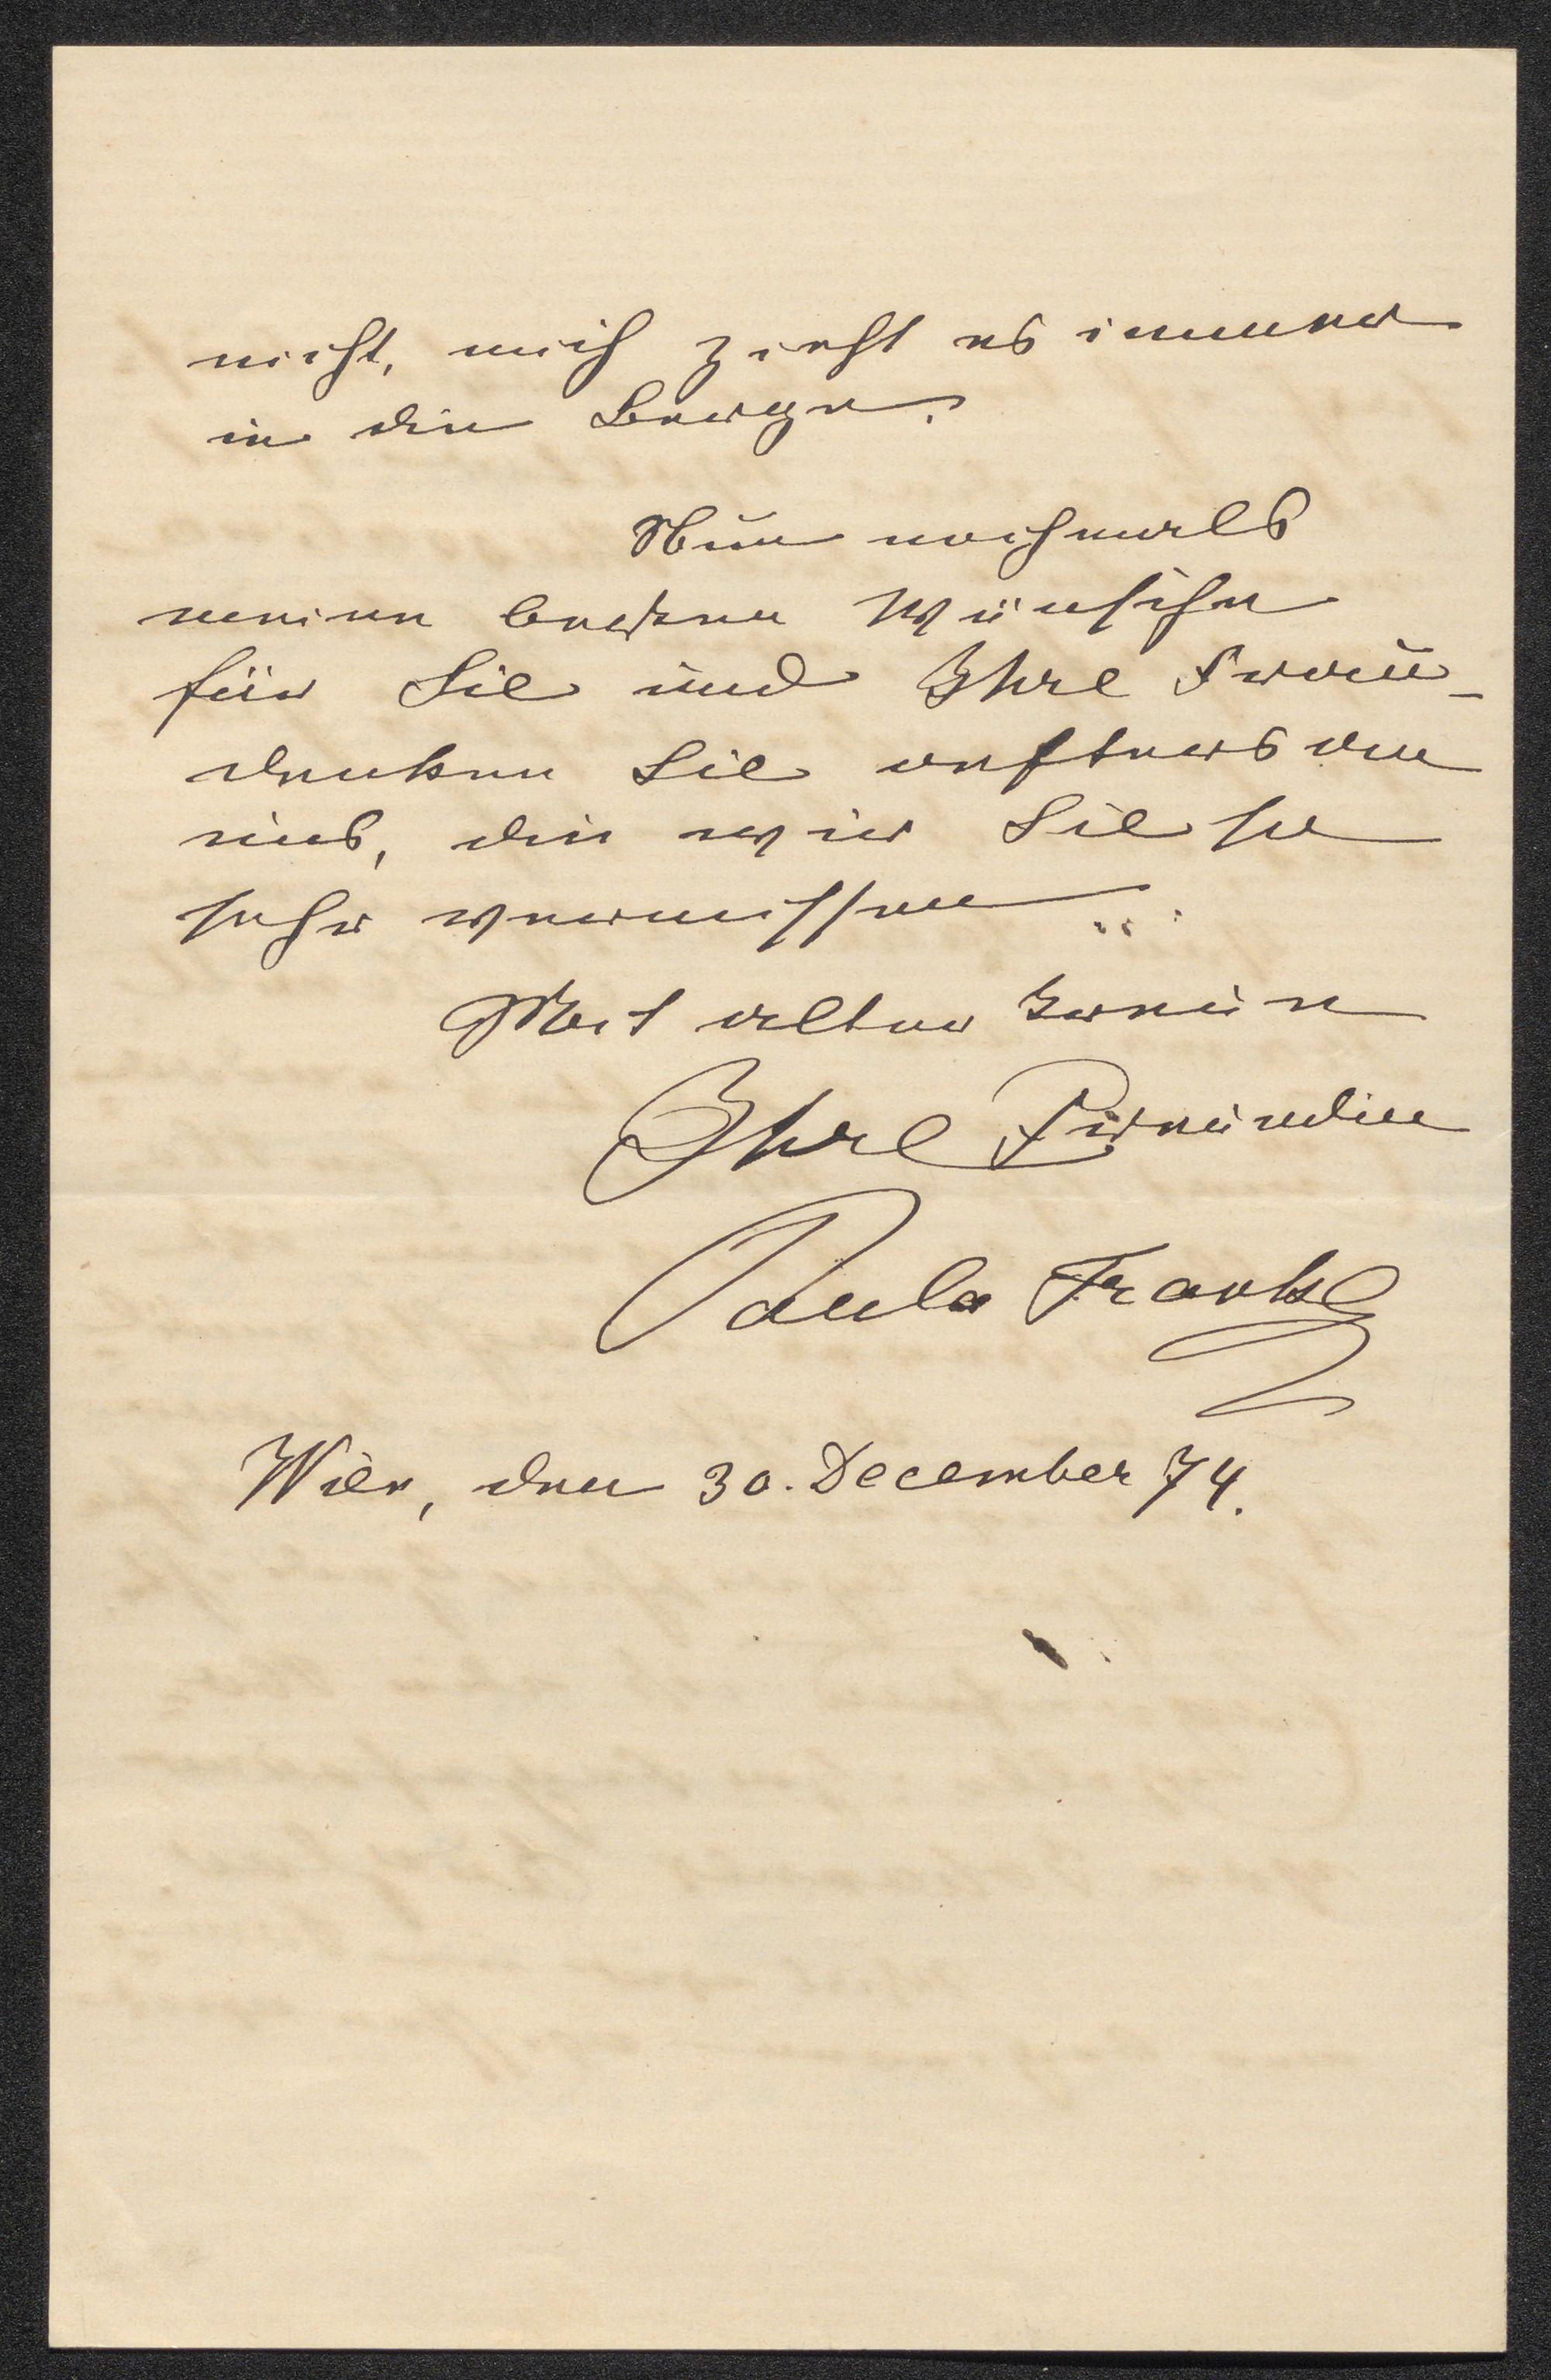 nicht, mich zieht es immer
in die Berge.
Nun nochmals
meine besten Wünsche
für Sie und Ihre Frau –
denken Sie öfters an
uns, die wir Sie so
sehr vermissen ...
Mit alter Treue
Ihre Freundin
Paula Frankl
Wien, den 30. December 74.